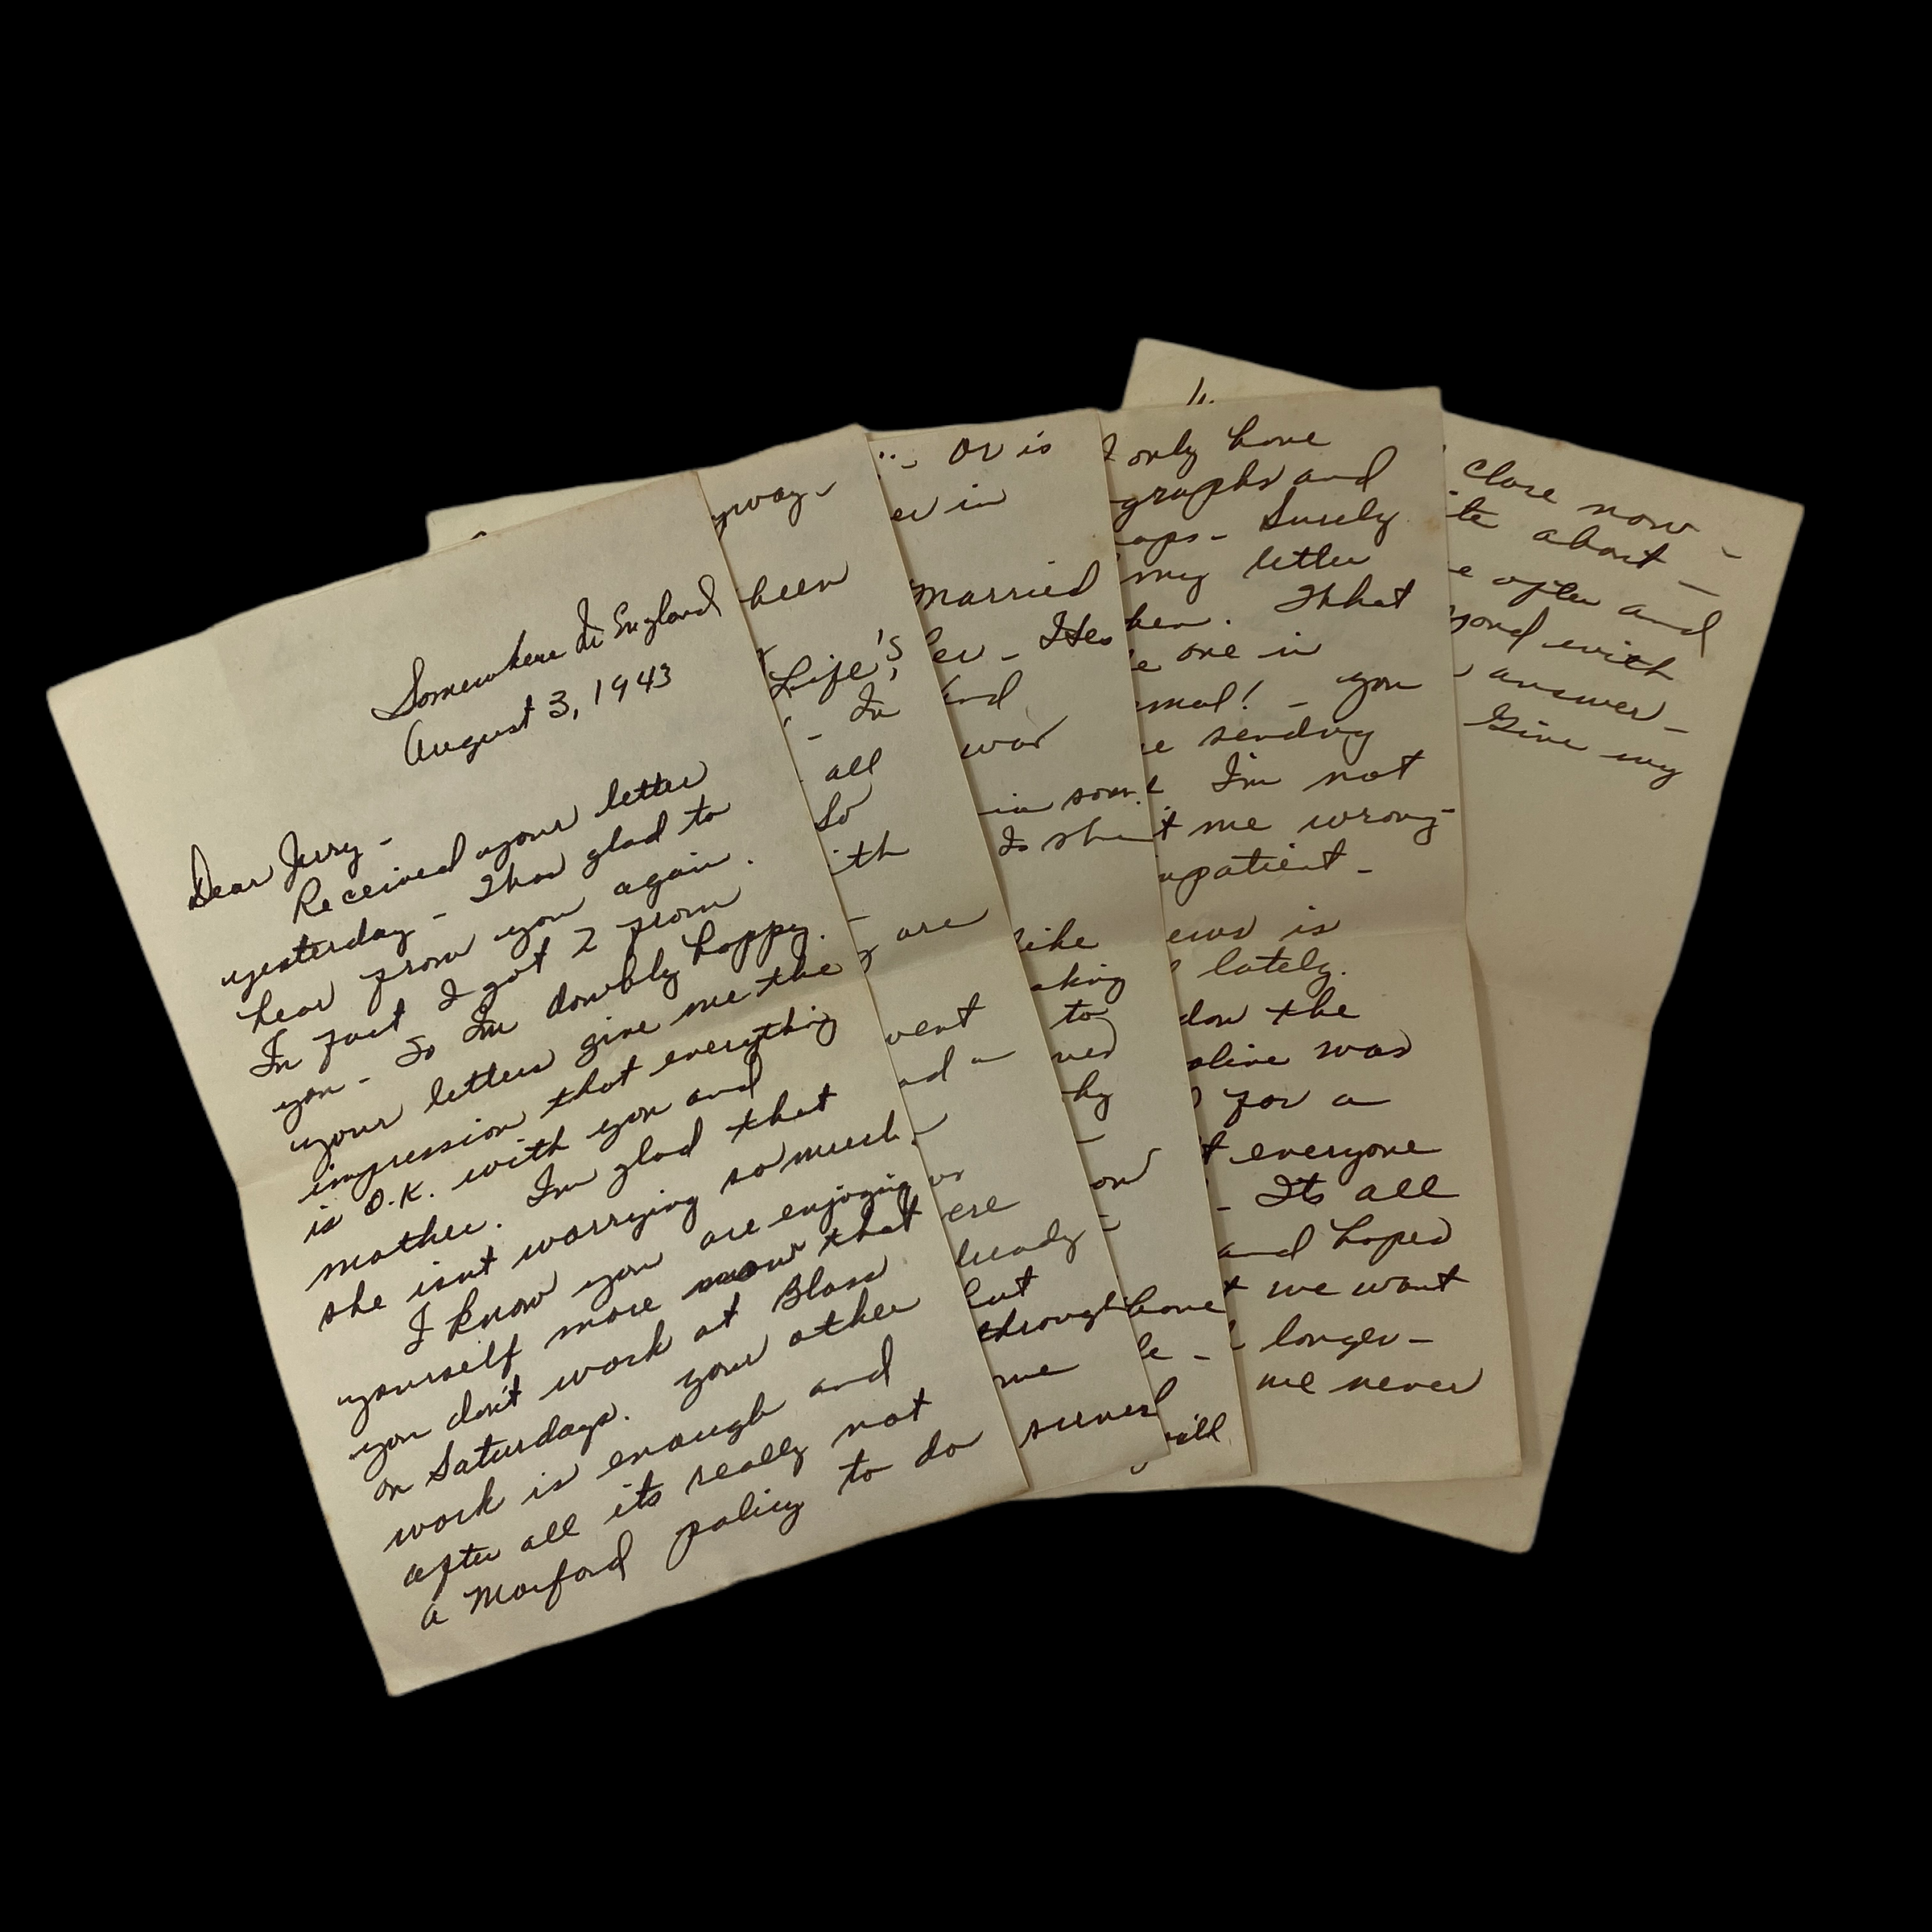 Somewhere In England
August 3, 1943
Dear Jerry -
Received your letter
yesterday - Thas glad to
hear from you again.
In fact I got 2 from
you - So Im doubly happy.
your letters give me the
impression that everything
is O.K. with you and
mother. Im glad that
she isnt worrying so much.
I know you are enjoying
yourself more now that
you don't work at Blass
on Saturdays. your other
work is enough and
after all its really not
a Morford policy to do
been
Life's
- In
all
So
are
me
Or is
in
married
Its
war
in som
to
only have
graphs and
Surely
my letter
That
one in
you
sending
Im not
me wrong -
lately.
the
was
for a
everyone
- Its all
and hopes
we want
longer -
me never
close now -
about -
after and
with
answer -
Give my